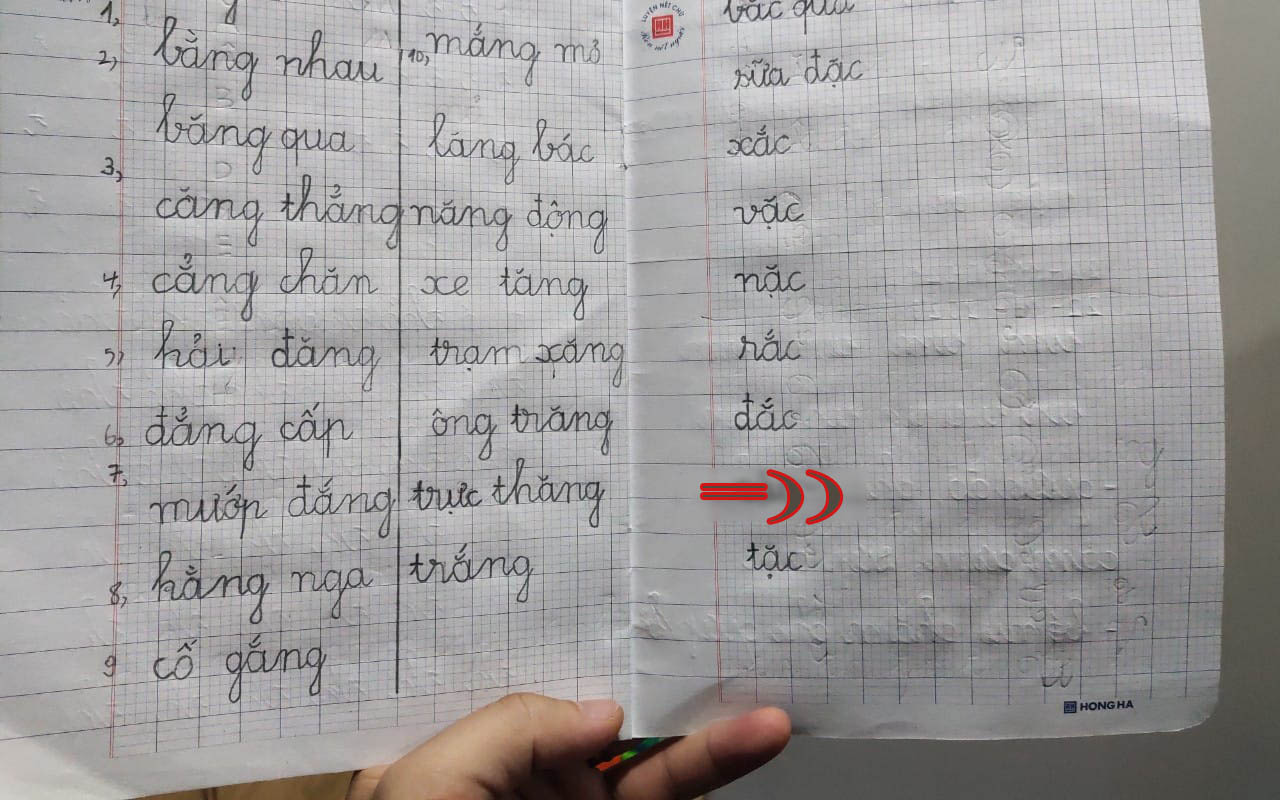 1,
2, bằng nhau
băng qua
3,
căng thẳng
4, cẳng chân
5, hải đăng
6, đẳng cấp
7,
mướp đắng
8, hằng nga
9 cố gắng
10, mắng mỏ
lăng bác
năng động
xe tăng
trạm xăng
ông trăng
trực thăng
trắng
LUYỆN NÉT CHỮ
Rèn nết người
bắc qua
sữa đặc
xắc
vặc
nặc
rắc
đắc
tặc
HONG HA